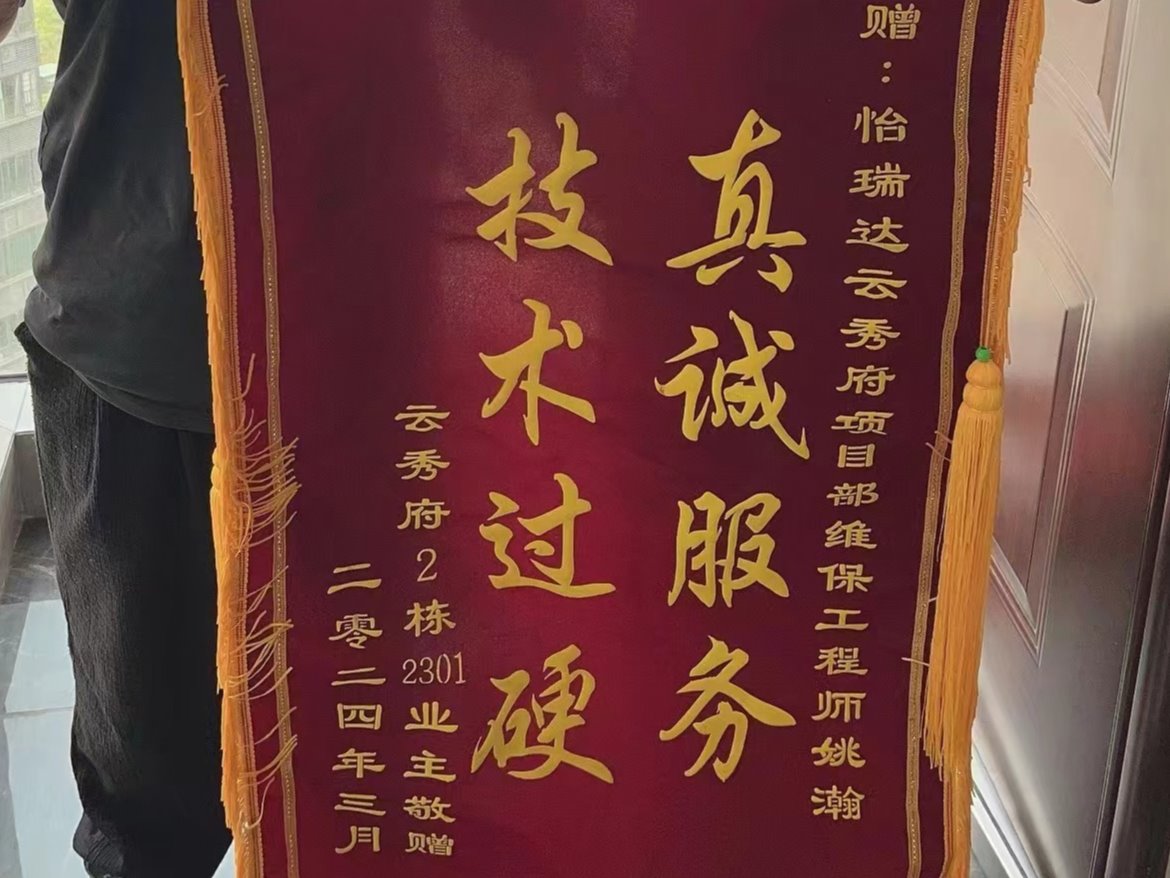 赠：怡瑞达云秀府项目部维保工程师姚瀚
真诚服务
技术过硬
云秀府2栋2301业主敬赠
二零二四年三月